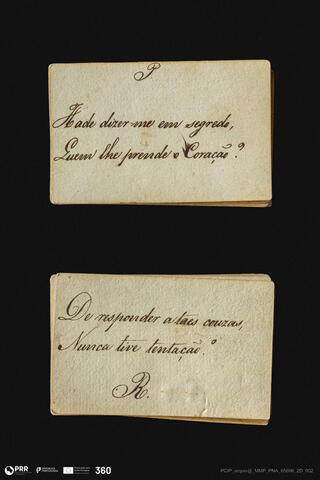 P.
Hade dizer-me em segredo,
Quem lhe prende o Coração?
De responder a taes couzas,
Nunca tive tentação.
R.
PRR
REPÚBLICA PORTUGUESA
360
PCIP_origin@_MMP_PNA_65696_2D_002